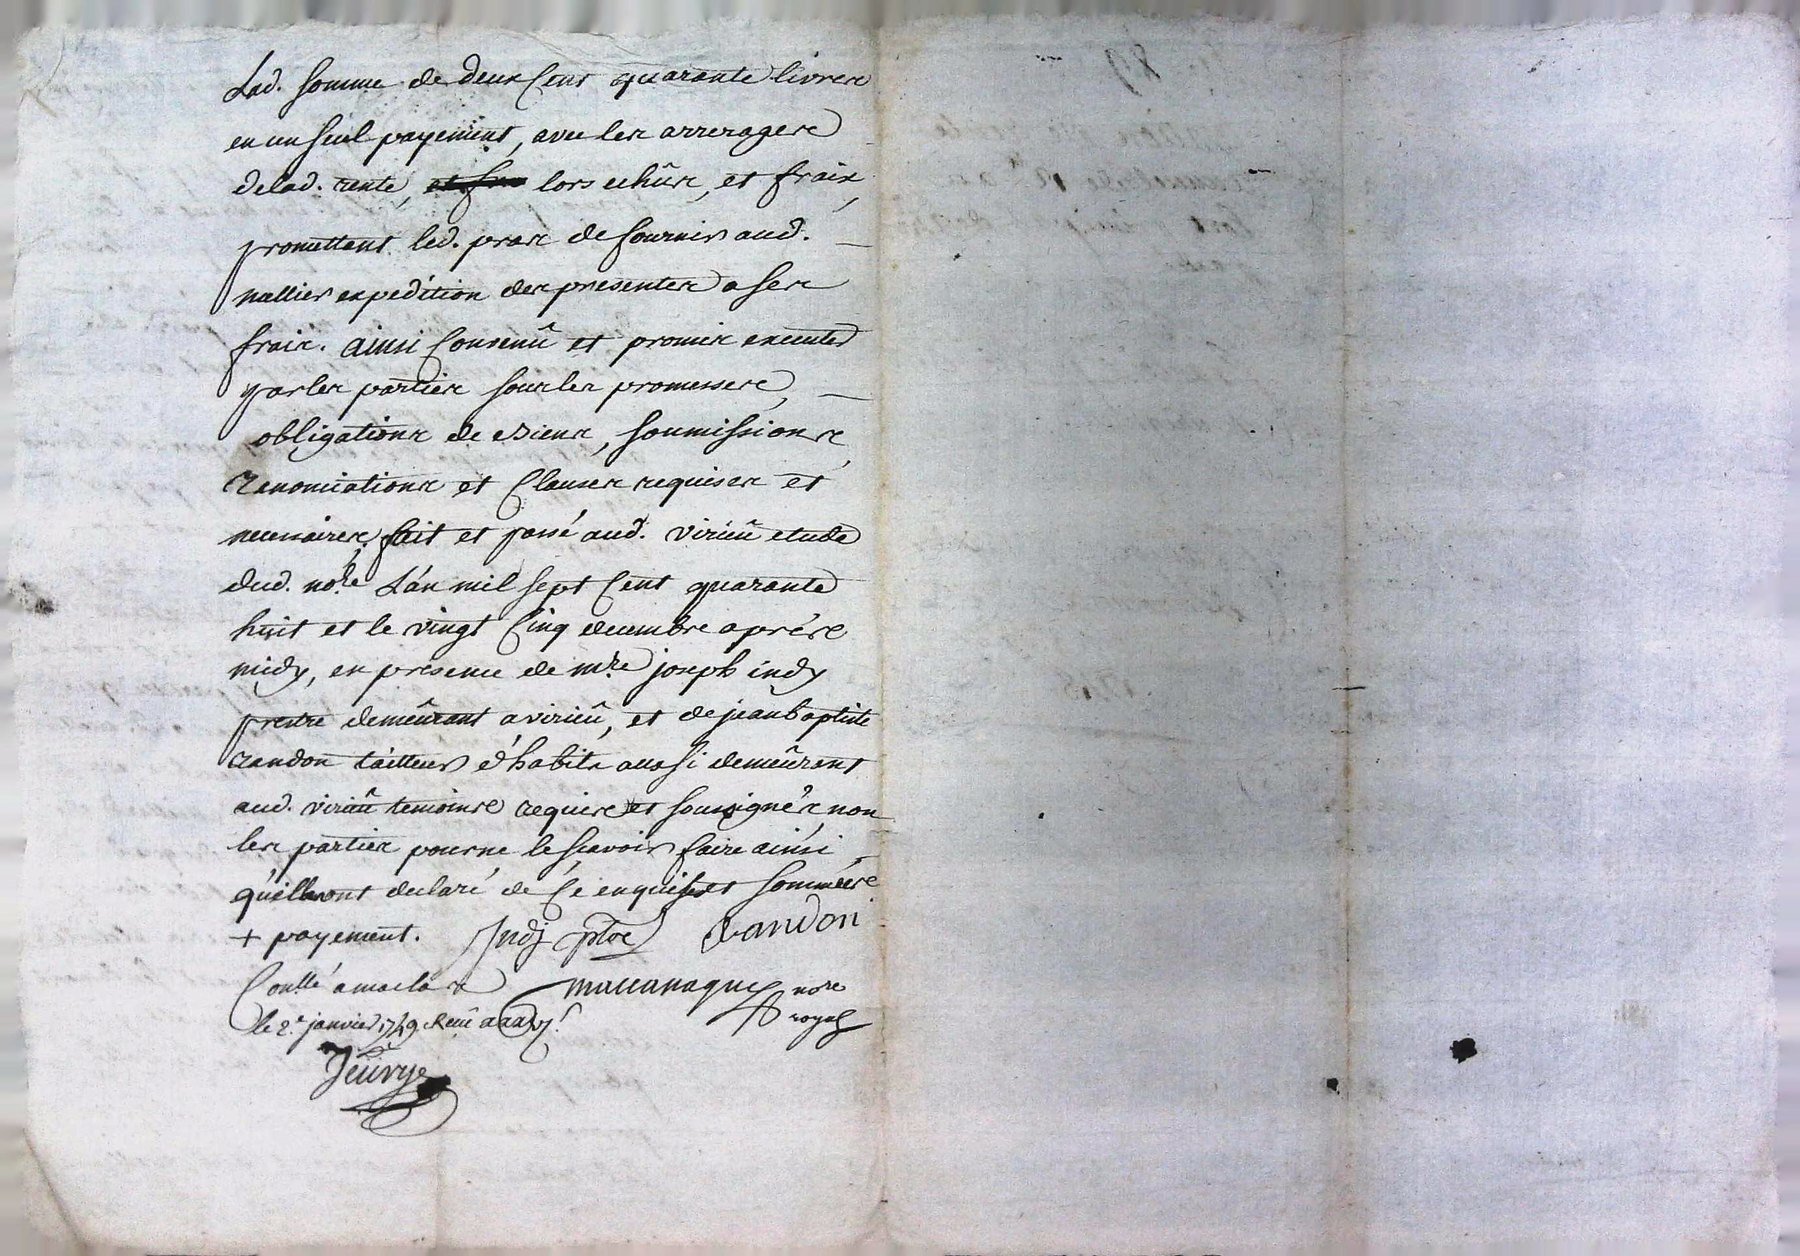 Lad. somme de deux cent quarante livres
en un seul payement, avec les arrerages
de lad. rente, lors echûs, et frais,
promettant led. pras de fournir aud.
nallier expedition des presentes a ses
frais. ainsi convenû et promis executer
par les parties sous les promesses,
obligations de biens, soumissions,
renonciations et clauses requises et
necessaires, fait et passé aud. virieû etude
dud. nore. L'an mil sept cent quarante
huit et le vingt cinq decembre aprés
midy, en presence de mre. joseph indy
pretre demeûrant a virieû, et de jean baptiste
randon tailleur d'habits aussi demeûrant
aud. virieû temoins requis et soussignés, non
les parties pour ne le scavoir faire ainsi
qu'elles ont declaré de ce enquises et sommées
+ payement. Indy ptre Randon
Conllé a maclas nore
le 2e. janvier 1749 Receu royal